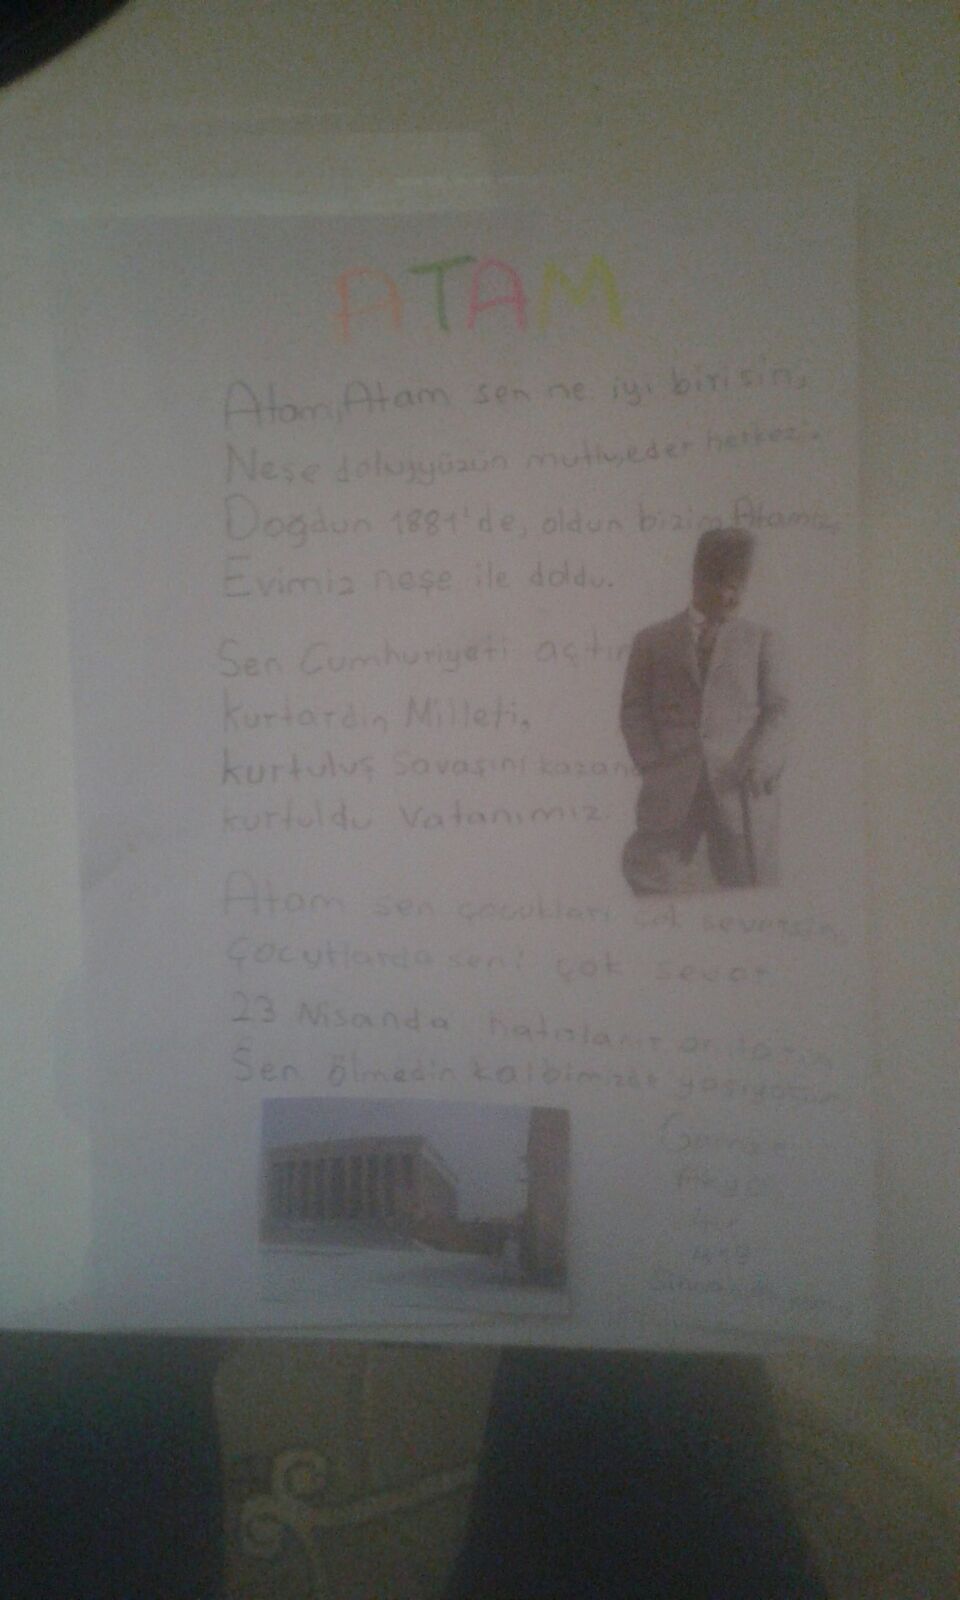 ATAM
Atam, Atam sen ne iyi birisin,
Neşe dolu yüzün mutlu eder herkezi.
Doğdun 1881'de, oldun bizim Atamız,
Evimiz neşe ile doldu.
Sen Cumhuriyeti açtın
kurtardın Milleti,
kurtuluş Savaşını
kurtuldu Vatanımız.
Atam sen çocukları çok seversin,
Çocuklarda seni çok sever
23 Nisanda
Sen ölmedin kalbimizde yaşıyorsun